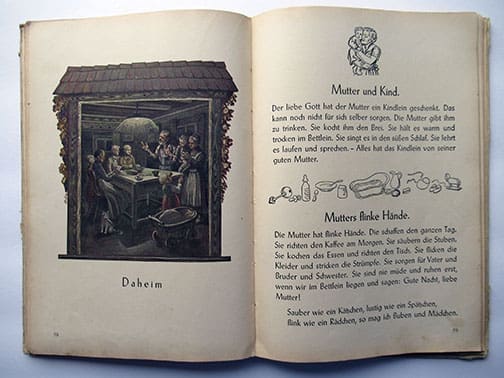 Daheim
Mutter und Kind.
Der liebe Gott hat der Mutter ein Kindlein geschenkt. Das
kann noch nicht für sich selber sorgen. Die Mutter gibt ihm
zu trinken. Sie kocht ihm den Brei. Sie hält es warm und
trocken im Bettlein. Sie singt es in den süßen Schlaf. Sie lehrt
es laufen und sprechen. – Alles hat das Kindlein von seiner
guten Mutter.
Mutters flinke Hände.
Die Mutter hat flinke Hände. Die schaffen den ganzen Tag.
Sie richten den Kaffee am Morgen. Sie säubern die Stuben.
Sie kochen das Essen und richten den Tisch. Sie flicken die
Kleider und stricken die Strümpfe. Sie sorgen für Vater und
Bruder und Schwester. Sie sind nie müde und ruhen erst,
wenn wir im Bettlein liegen und sagen: Gute Nacht, liebe
Mutter!
Sauber wie ein Kätzchen, lustig wie ein Spätzchen,
flink wie ein Rädchen, so mag ich Buben und Mädchen.